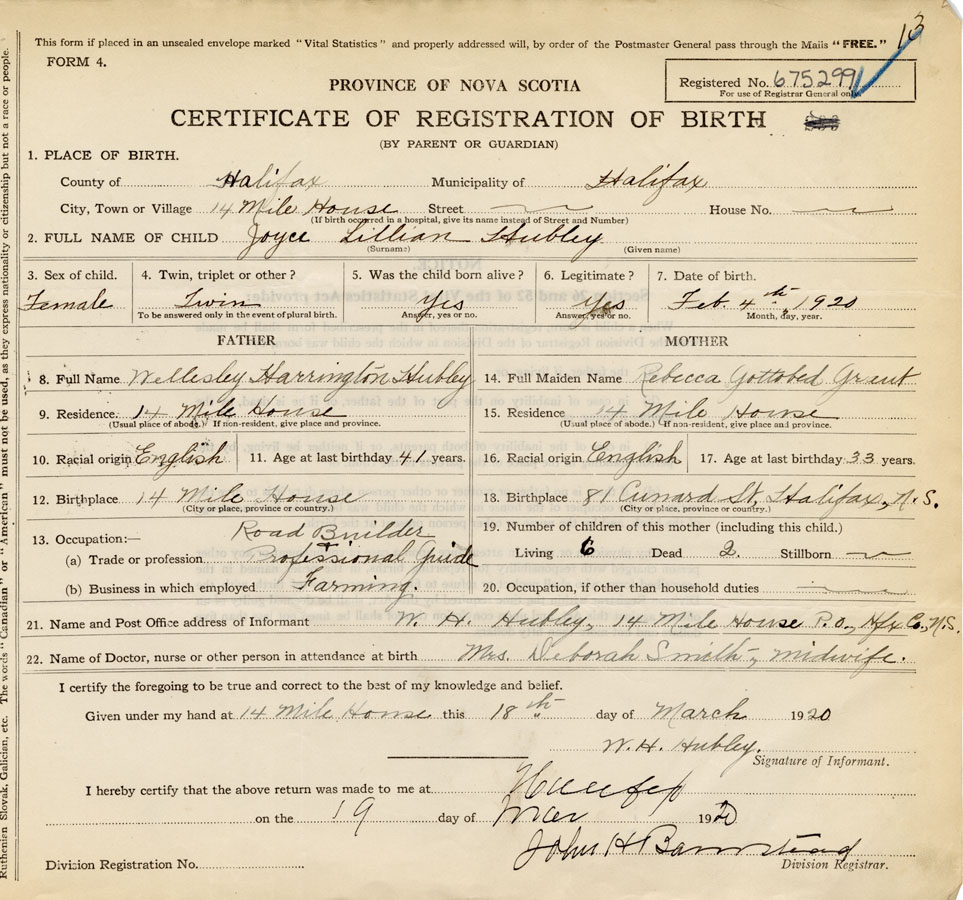 13
This form if placed in an unsealed envelope marked "Vital Statistics" and properly addressed will, by order of the Postmaster General pass through the Mails "FREE."
FORM 4.
Registered No. 675299
For use of Registrar General only.
PROVINCE OF NOVA SCOTIA
CERTIFICATE OF REGISTRATION OF BIRTH
(BY PARENT OR GUARDIAN)
1. PLACE OF BIRTH.
County of Halifax Municipality of Halifax
City, Town or Village 14 Mile House Street House No.
(If birth occurred in a hospital, give its name instead of Street and Number)
2. FULL NAME OF CHILD Joyce Lillian Hubley
(Surname) (Given name)
3. Sex of child. 4. Twin, triplet or other? 5. Was the child born alive? 6. Legitimate? 7. Date of birth.
Female Twin Yes Yes Feb. 4th, 1920
To be answered only in the event of plural birth. Answer, yes or no. Answer, yes or no. Month, day, year.
FATHER MOTHER
8. Full Name Wellesley Harrington Hubley 14. Full Maiden Name Rebecca Gottobed Grant
9. Residence. 14 Mile House 15. Residence 14 Mile House
(Usual place of abode.) If non-resident, give place and province. (Usual place of abode.) If non-resident, give place and province.
10. Racial origin English 11. Age at last birthday 41 years. 16. Racial origin English 17. Age at last birthday 33 years.
12. Birthplace 14 Mile House 18. Birthplace 81 Cunard St. Halifax, N.S.
(City or place, province or country.) (City or place, province or country.)
13. Occupation:— Road Builder 19. Number of children of this mother (including this child.)
(a) Trade or profession Professional Guide Living 6 Dead 2. Stillborn
(b) Business in which employed Farming. 20. Occupation, if other than household duties
21. Name and Post Office address of Informant W. H. Hubley, 14 Mile House P.O., Hfx Co., N.S.
22. Name of Doctor, nurse or other person in attendance at birth Mrs. Deborah Smith, midwife.
I certify the foregoing to be true and correct to the best of my knowledge and belief.
Given under my hand at 14 Mile House this 18th day of March 1920
W. H. Hubley.
Signature of Informant.
I hereby certify that the above return was made to me at Halifax
on the 19 day of Mar 1920
John H Barnstead
Division Registration No. Division Registrar.
Ruthenian Slovak, Galician, etc. The words "Canadian" or "American" must not be used, as they express nationality or citizenship but not a race or people.